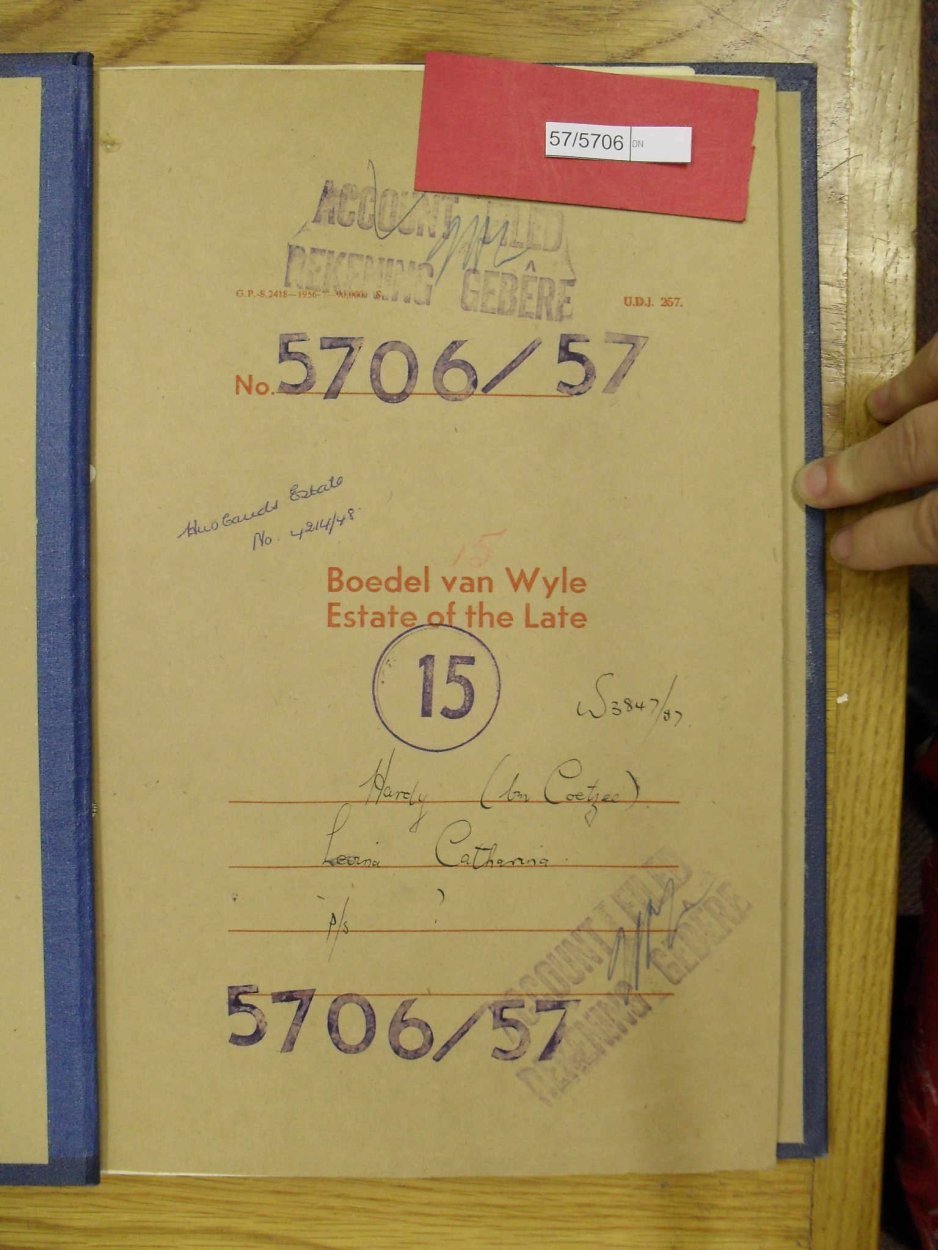 57/5706 DN
ACCOUNT FILED
REKENING GEBÊRE
G.P.-S.2418—1956- S.
U.D.J. 257.
No. 5706/57
Husbands Estate
No. 4214/48
15
Boedel van Wyle
Estate of the Late
15
3847/87
Hardy (bn Coetzee)
Catharina
p/s ?
ACCOUNT FILED
REKENING GEBÊRE
5706/57